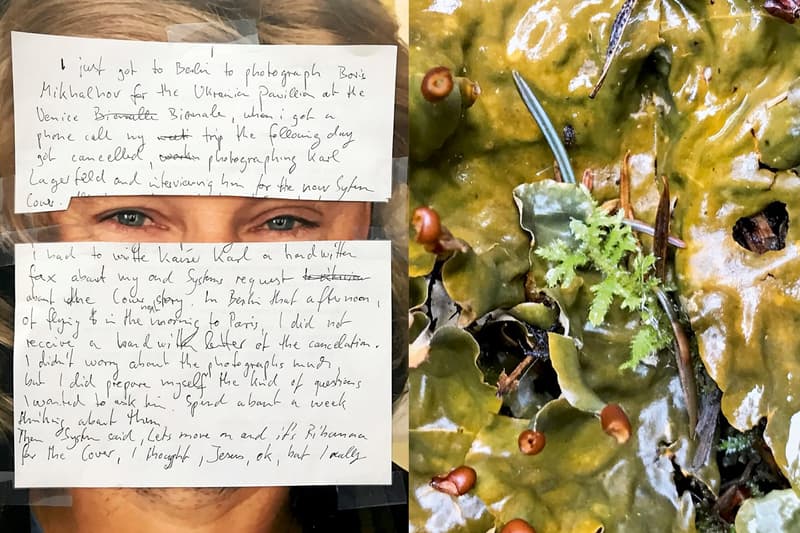 I just got to Berlin to photograph Boris
Mikhailov for the Ukranian Pavillion at the
Venice Biennalle Biennale, when i got a
phone call my trip the following day
got cancelled, photographing Karl
Lagerfeld and interviewing him for the new System
Cover.
i had to write Kaiser Karl a handwritten
fax about my and Systems request
about the Cover story. In Berlin that afternoon,
of flying in the morning to Paris, I did not
receive a hand letter of the cancelation.
I didn't worry about the photographs much
but I did prepare myself the kind of questions
I wanted to ask him. Spend about a week
thinking about them.
Then System said, Lets move on and it's Rihanna
for the Cover, I thought, Jesus, ok, but I really